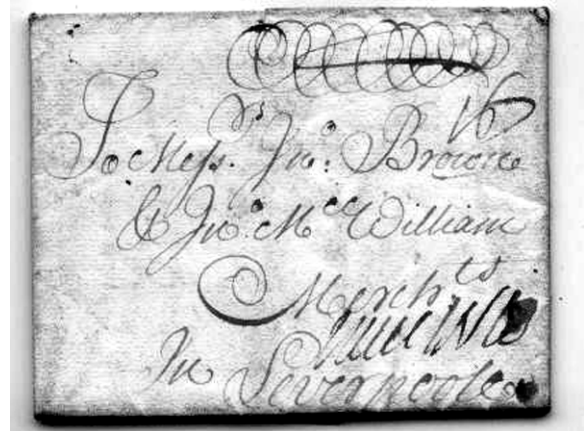 16
To Mess.rs Jno. Browne
& Jno. McWilliam
Merchts
In Leverpoole